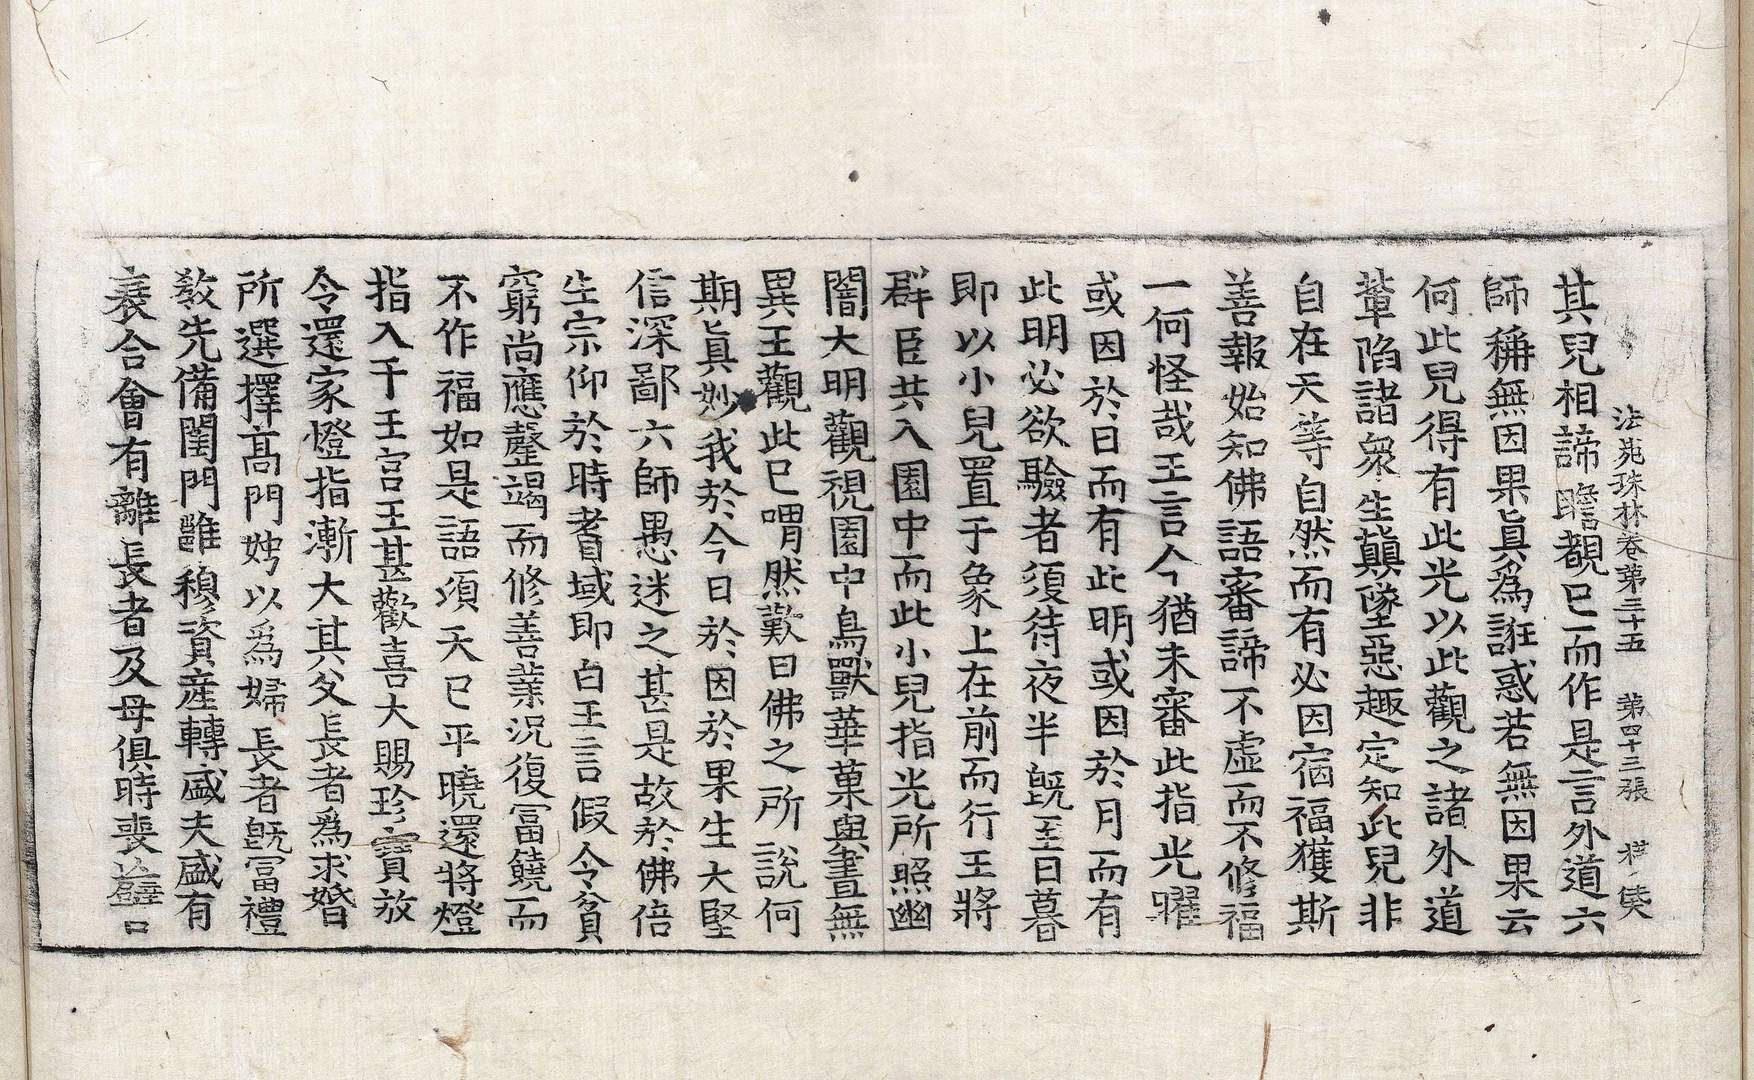 法苑珠林卷第三十五　第四十三張
其兒相諦瞻覩已而作是言外道六
師稱無因果眞爲誑惑若無因果云
何此兒得有此光以此觀之諸外道
輩陷諸衆生顚墜惡趣定知此兒非
自在天等自然而有必因宿福獲斯
善報始知佛語審諦不虛而不修福
一何怪哉王言今猶未審此指光曜
或因於日而有此明或因於月而有
此明必欲驗者須待夜半旣至日暮
即以小兒置于象上在前而行王將
群臣共入園中而此小兒指光所照幽
闇大明觀視園中鳥獸華菓與晝無
異王觀此已喟然歎曰佛之所說何
期眞妙我於今日於因於果生大堅
信深鄙六師愚迷之甚是故於佛倍
生宗仰於時耆域即白王言假令貧
窮尚應罄竭而修善業況復冨饒而
不作福如是語頃天已平曉還將燈
指入于王宮王甚歡喜大賜珍寶放
令還家燈指漸大其父長者爲求婚
所選擇高門娉以爲婦長者旣冨禮
敎先備閨門雝穆資産轉盛夫盛有
衰合會有離長者及母俱時喪